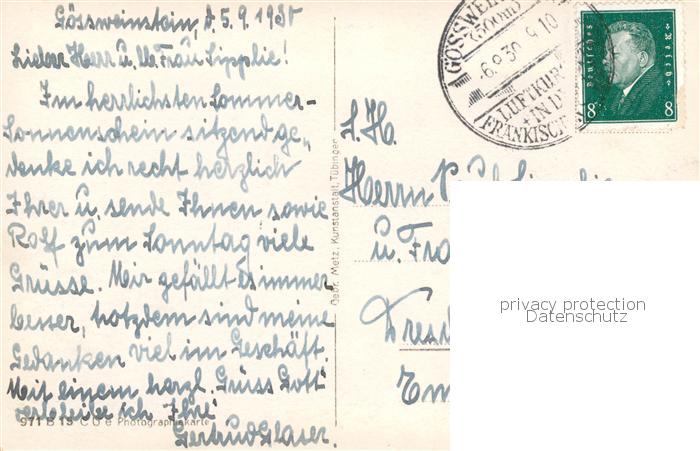 Gössweinstein, d. 5.9.1930
Lieber Herr u. lb. Frau Lipplie!
Im herrlichsten Sommer-
Sonnenschein sitzend ge-
denke ich recht herzlich
Ihrer u. sende Ihnen sowie
Rolf zum Sonntag viele
Grüsse. Mir gefällt es immer
besser, trotzdem sind meine
Gedanken viel im Geschäft.
Mit einem herzl. "Grüss Gott"
verbleibe ich Ihre
Gertrud Glaser.
971 B 13 C U e Photographiekarte
Gebr. Metz, Kunstanstalt, Tübingen
GÖSSWEI
(500m)
-6.9.30 9-10
LUFTKUR
IN D
FRÄNKISCH
Deutsches Reich
8 8
S. H.
Herrn
u. Fra
Dresd
privacy protection
Datenschutz